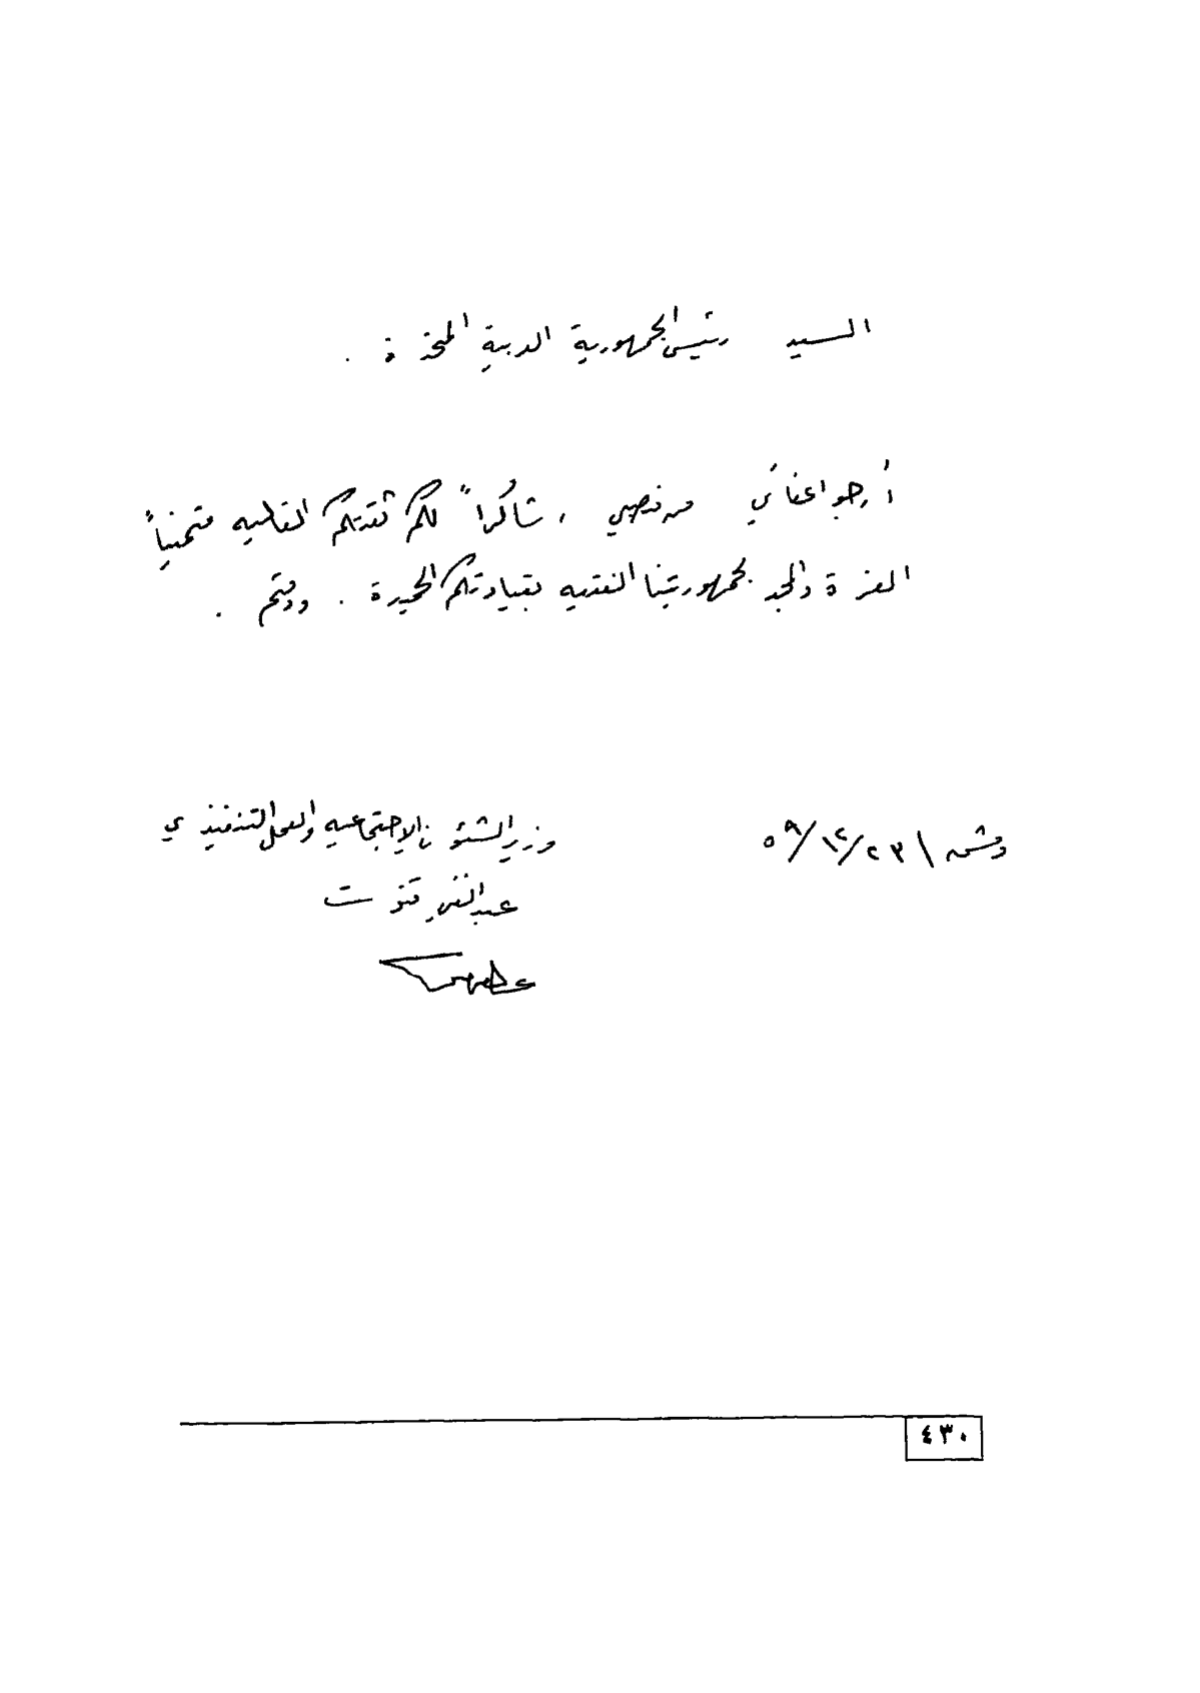 السيد رئيس الجمهورية العربية المتحدة .
أرجو اعفائي من منصبي ، شاكراً لكم ثقتكم الغاليه متمنياً
العزة والمجد لجمهوريتنا الفتيه بقيادتكم الخيرة . ودمتم .
دمشق ٢٣\١٢/٥٩
وزير الشئون الإجتماعيه والعمل التنفيذي
عبد الغني قنوت
٤٣٠